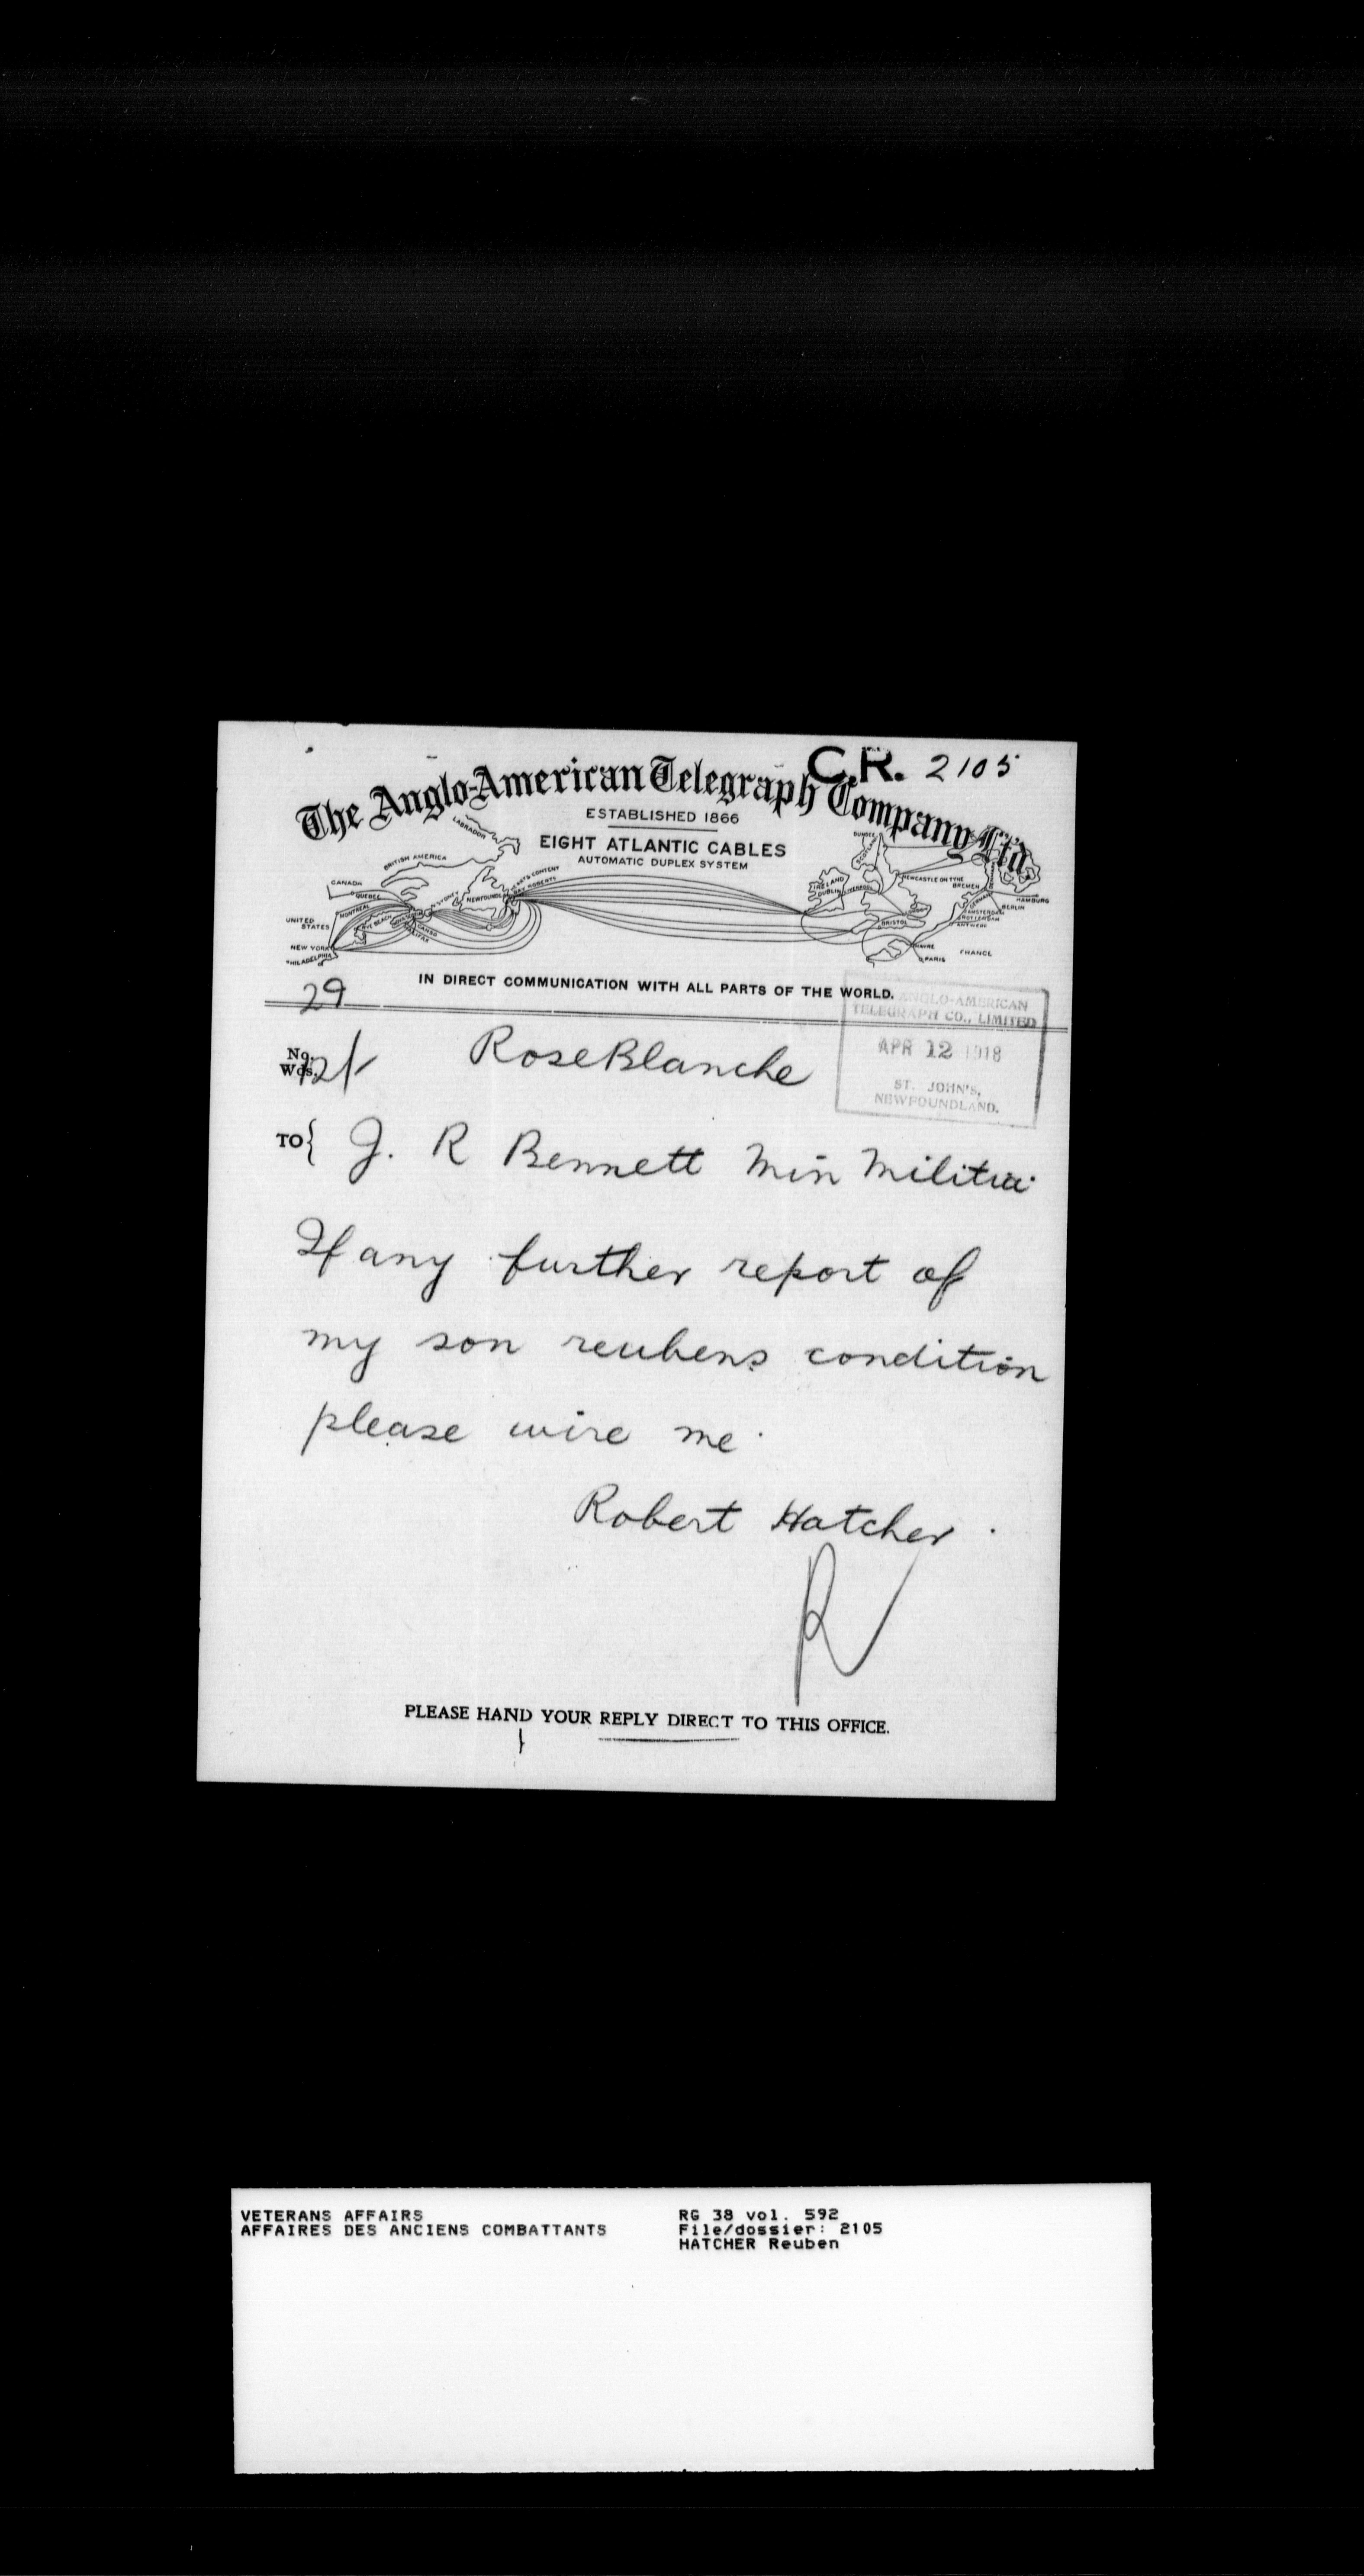 C.R. 2105
The Anglo-American Telegraph Company Ltd.
ESTABLISHED 1866
EIGHT ATLANTIC CABLES
AUTOMATIC DUPLEX SYSTEM
LABRADOR
BRITISH AMERICA
CANADA
QUEBEC
MONTREAL
UNITED
STATES
NEW YORK
PHILADELPHIA
RYE BEACH
CANSO
HALIFAX
SYDNEY
NEWFOUNDL
HEARTS CONTENT
BAY ROBERTS
DUNDEE
SCOTLAND
IRELAND
DUBLIN
LIVERPOOL
NEWCASTLE ON TYNE
BREMEN
HAMBURG
BERLIN
GERMANY
AMSTERDAM
ROTTERDAM
ANTWERP
BRISTOL
HAVRE
PARIS
FRANCE
IN DIRECT COMMUNICATION WITH ALL PARTS OF THE WORLD.
29
ANGLO-AMERICAN
TELEGRAPH CO., LIMITED
APR 12 1918
ST. JOHN'S,
NEWFOUNDLAND.
No.
Wds.
Rose Blanche
TO { J. R Bennett Min Militia
If any further report of
my son reubens condition
please wire me
Robert Hatcher
R
PLEASE HAND YOUR REPLY DIRECT TO THIS OFFICE.
VETERANS AFFAIRS
AFFAIRES DES ANCIENS COMBATTANTS
RG 38 vol. 592
File/dossier: 2105
HATCHER Reuben